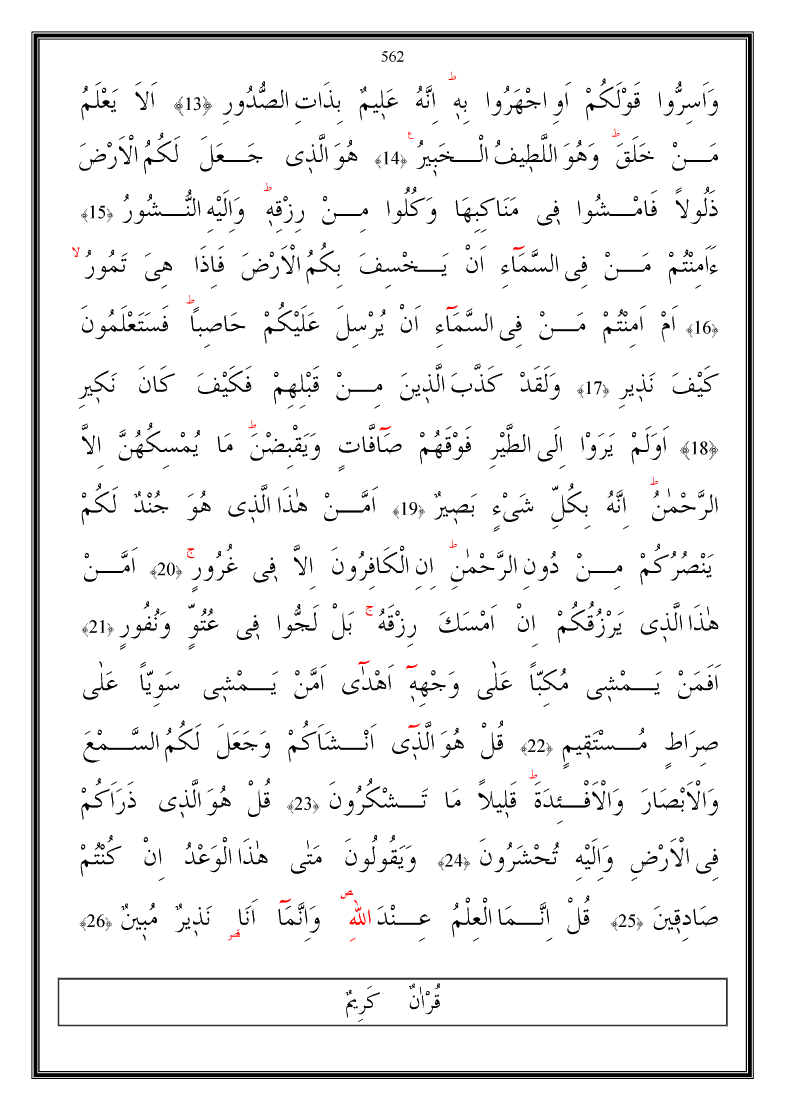 562
وَاَسِرُّوا قَوْلَكُمْ اَوِ اجْهَرُوا بِهٖۜ اِنَّهُ عَلٖيمٌ بِذَاتِ الصُّدُورِ ﴿13﴾ اَلَا يَعْلَمُ
مَـــنْ خَلَقَۜ وَهُوَ اللَّطٖيفُ الْـــخَبٖيرُࣖ ﴿14﴾ هُوَ الَّذٖى جَـــعَلَ لَكُمُ الْاَرْضَ
ذَلُولاً فَامْـــشُوا فٖى مَنَاكِبِهَا وَكُلُوا مِـــنْ رِزْقِهٖۜ وَاِلَيْهِ النُّـــشُورُ ﴿15﴾
ءَاَمِنْتُمْ مَـــنْ فِى السَّمَٓاءِ اَنْ يَـــخْسِفَ بِكُمُ الْاَرْضَ فَاِذَا هِىَ تَمُورُۙ
﴿16﴾ اَمْ اَمِنْتُمْ مَـــنْ فِى السَّمَٓاءِ اَنْ يُرْسِلَ عَلَيْكُمْ حَاصِباًۜ فَسَتَعْلَمُونَ
كَيْفَ نَذٖيرِ ﴿17﴾ وَلَقَدْ كَذَّبَ الَّذٖينَ مِـــنْ قَبْلِهِمْ فَكَيْفَ كَانَ نَكٖيرِ
﴿18﴾ اَوَلَمْ يَرَوْا اِلَى الطَّيْرِ فَوْقَهُمْ صَٓافَّاتٍ وَيَقْبِضْنَۜ مَا يُمْسِكُهُنَّ اِلَّا
الرَّحْمٰنُۜ اِنَّهُ بِكُلِّ شَىْءٍ بَصٖيرٌ ﴿19﴾ اَمَّـــنْ هٰذَا الَّذٖى هُوَ جُنْدٌ لَكُمْ
يَنْصُرُكُمْ مِـــنْ دُونِ الرَّحْمٰنِۜ اِنِ الْكَافِرُونَ اِلَّا فٖى غُرُورٍۚ ﴿20﴾ اَمَّـــنْ
هٰذَا الَّذٖى يَرْزُقُكُمْ اِنْ اَمْسَكَ رِزْقَهُۚ بَلْ لَجُّوا فٖى عُتُوٍّ وَنُفُورٍ ﴿21﴾
اَفَمَنْ يَـــمْشٖى مُكِبّاً عَلٰى وَجْهِهٖٓ اَهْدٰٓى اَمَّنْ يَـــمْشٖى سَوِيّاً عَلٰى
صِرَاطٍ مُـــسْتَقٖيمٍ ﴿22﴾ قُلْ هُوَ الَّذٖٓى اَنْـــشَاَكُمْ وَجَعَلَ لَكُمُ السَّـــمْعَ
وَالْاَبْصَارَ وَالْاَفْـــئِدَةَۜ قَلٖيلاً مَا تَـــشْكُرُونَ ﴿23﴾ قُلْ هُوَ الَّذٖى ذَرَاَكُمْ
فِى الْاَرْضِ وَاِلَيْهِ تُحْشَرُونَ ﴿24﴾ وَيَقُولُونَ مَتٰى هٰذَا الْوَعْدُ اِنْ كُنْتُمْ
صَادِقٖينَ ﴿25﴾ قُلْ اِنَّـــمَا الْعِلْمُ عِـــنْدَ اللّٰهِࣕ وَاِنَّمَٓا اَنَا۬ نَذٖيرٌ مُبٖينٌ ﴿26﴾
قُرْاٰنٌ كَرٖيمٌ